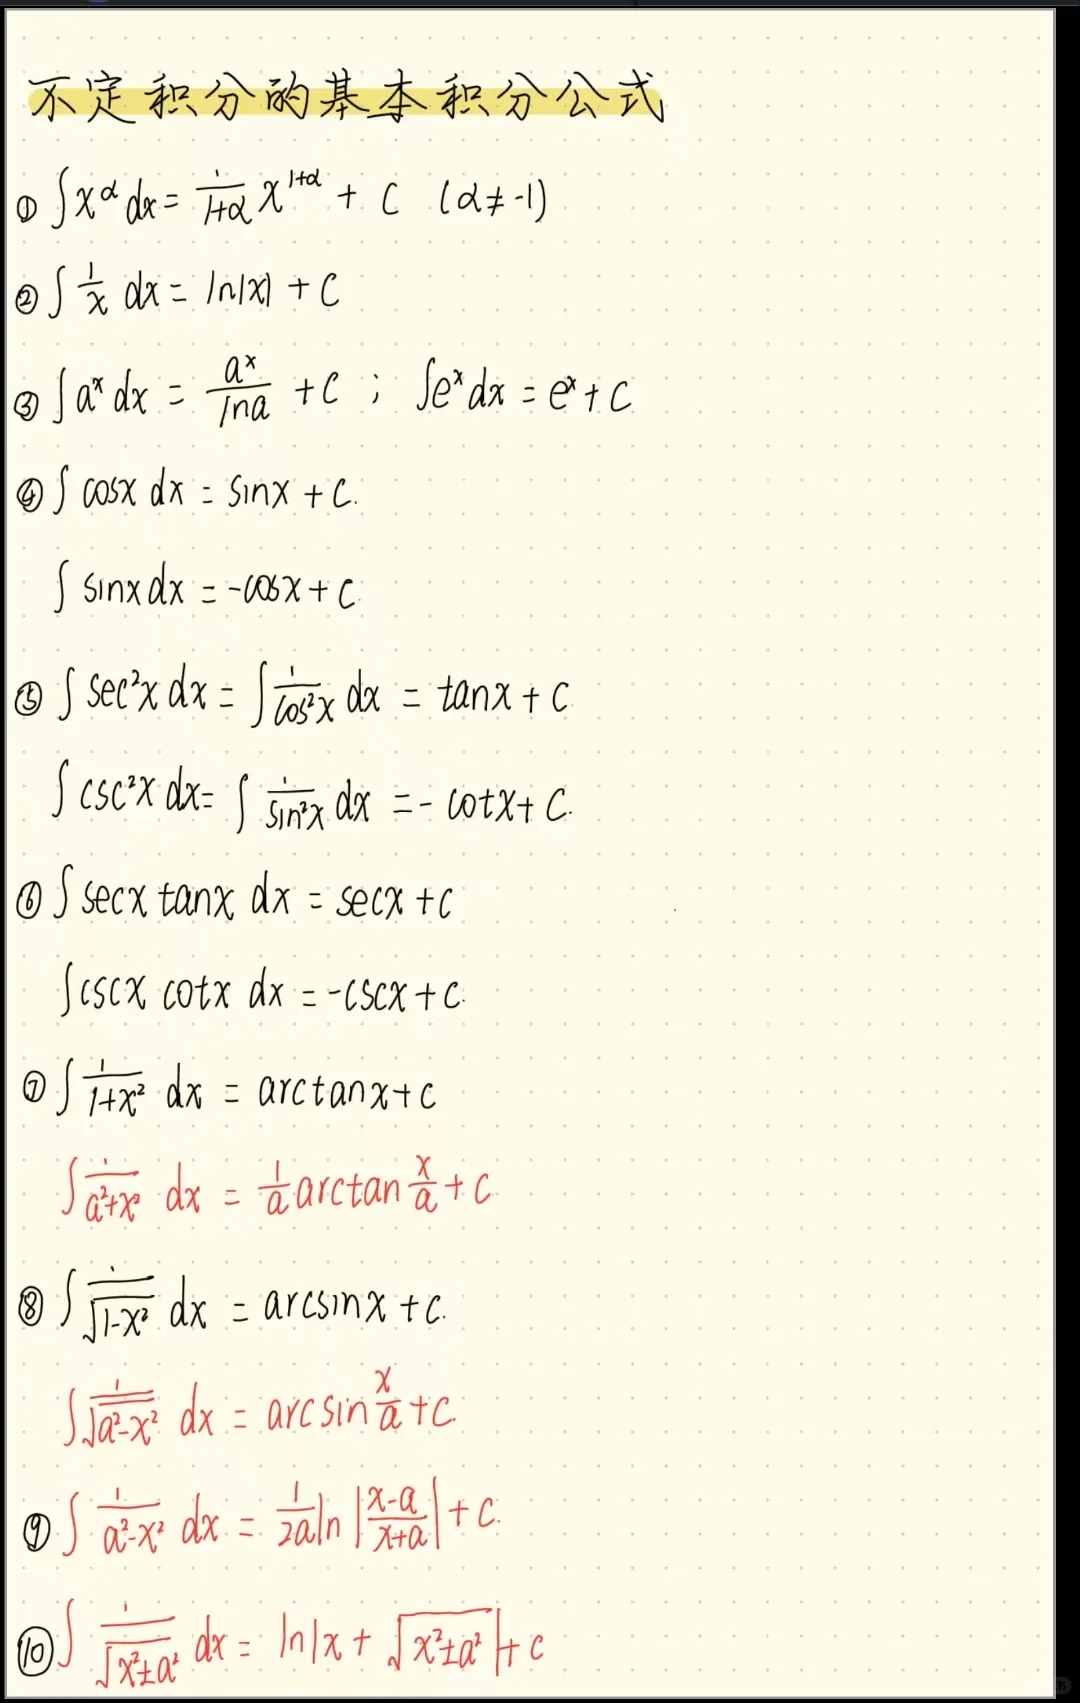 不定积分的基本积分公式
① ∫x^α dx = 1/(1+α) x^(1+α) + C (α≠-1)
② ∫ 1/x dx = ln|x| + C
③ ∫a^x dx = a^x/lna + C ; ∫e^x dx = e^x + C
④ ∫ cosx dx = sinx + C.
∫ sinx dx = -cosx + C.
⑤ ∫ sec²x dx = ∫ 1/cos²x dx = tanx + C
∫ csc²x dx = ∫ 1/sin²x dx = - cotx + C.
⑥ ∫ secx tanx dx = secx + C
∫ cscx cotx dx = -cscx + C.
⑦ ∫ 1/(1+x²) dx = arctanx + C
∫ 1/(a²+x²) dx = 1/a arctan x/a + C
⑧ ∫ 1/√(1-x²) dx = arcsinx + C.
∫ 1/√(a²-x²) dx = arcsin x/a + C.
⑨ ∫ 1/(a²-x²) dx = 1/2a ln |(x-a)/(x+a)| + C.
⑩ ∫ 1/√(x²±a²) dx = ln|x + √(x²±a²)| + C